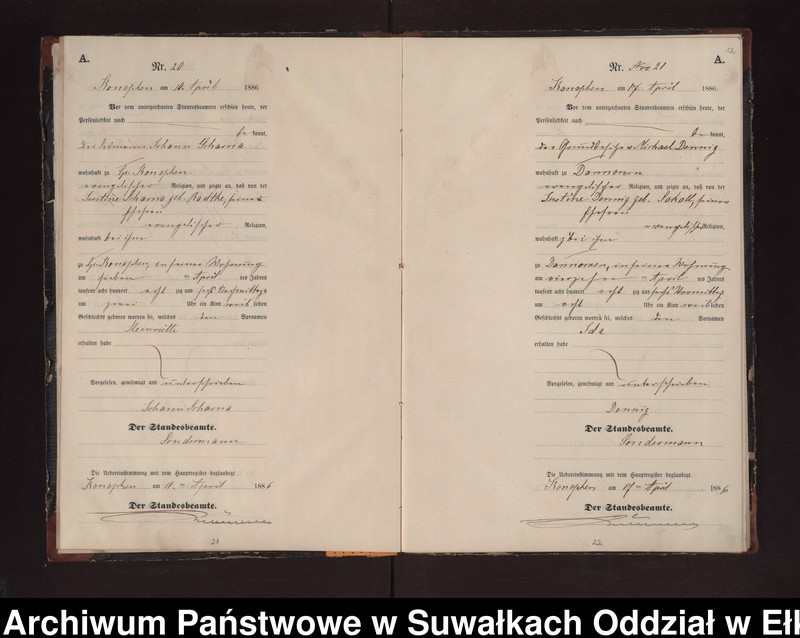 A.
Nr. 20
Konopken am 10. April 1886
Vor dem unterzeichneten Standesbeamten erschien heute, der
Persönlichkeit nach
be kannt,
Johann Scharna
wohnhaft zu Gr. Konopken
evangelischer Religion, und zeigte an, daß von der
Justine Scharna geb. Radtke, seiner
Ehefrau
evangelischer Religion,
wohnhaft bei ihm
zu Gr. Konopken, in seiner Wohnung
am sieben ten April des Jahres
tausend acht hundert acht zig und sechs Nachmittags
um zwei Uhr ein Kind weib lichen
Geschlechts geboren worden sei, welches den Vornamen
Heinriette
erhalten habe
Vorgelesen, genehmigt und unterschrieben
Johann Scharna
Der Standesbeamte.
Sondermann
Die Uebereinstimmung mit dem Hauptregister beglaubigt.
Konopken am 10. ten April 1886
Der Standesbeamte.
21
12
A.
Nr. 21
Konopken am 17. April 1886.
Vor dem unterzeichneten Standesbeamten erschien heute, der
Persönlichkeit nach
be kannt,
der Grundbesitzer Michael Dennig
wohnhaft zu Dannowen
evangelischer Religion, und zeigte an, daß von der
Justine Dennig geb. Sokoll, seiner
Ehefrau
evangelischer Religion,
wohnhaft bei ihm
zu Dannowen, in seiner Wohnung
am vierzehn ten April des Jahres
tausend acht hundert acht zig und sechs Vormittags
um acht Uhr ein Kind weib lichen
Geschlechts geboren worden sei, welches den Vornamen
Ida
erhalten habe
Vorgelesen, genehmigt und unterschrieben
Dennig
Der Standesbeamte.
Sondermann
Die Uebereinstimmung mit dem Hauptregister beglaubigt.
Konopken am 17 ten April 1886
Der Standesbeamte.
22
Archiwum Państwowe w Suwałkach Oddział w Eł